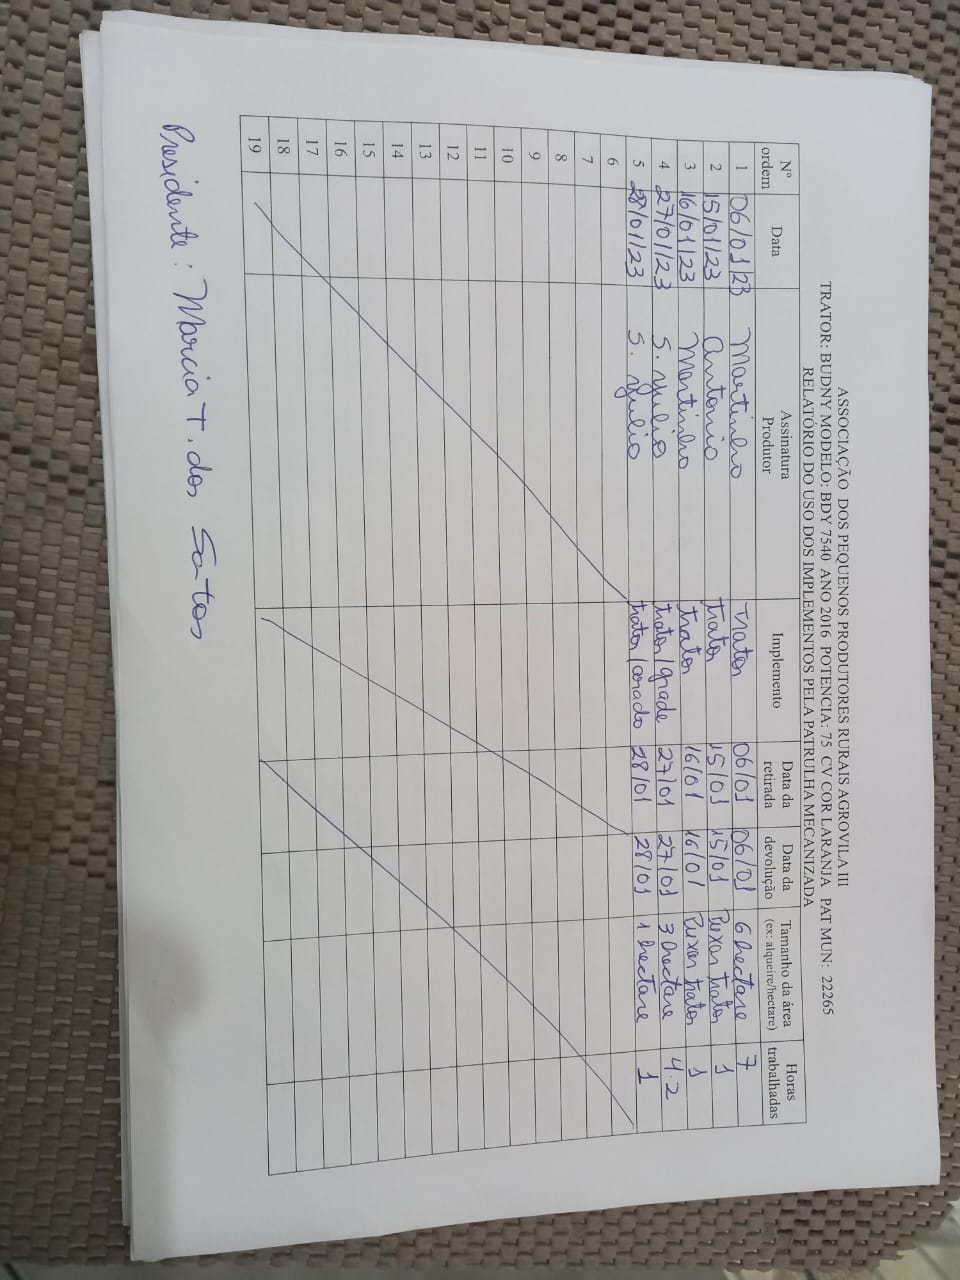 ASSOCIAÇÃO DOS PEQUENOS PRODUTORES RURAIS AGROVILA III
TRATOR: BUDNY MODELO: BDY 7540 ANO 2016 POTENCIA: 75 CV COR LARANJA PAT MUN: 22265
RELATÓRIO DO USO DOS IMPLEMENTOS PELA PATRULHA MECANIZADA
Nº ordem Data Assinatura Produtor Implemento Data da retirada Data da devolução Tamanho da área (ex: alqueire/hectare) Horas trabalhadas
1 06/01/23 Martinho Trator 06/01 06/01 6 hectare 7
2 15/01/23 Antonio trator 15/01 15/01 Puxar trator 1
3 16/01/23 Martinho trator 16/01 16/01 Puxar trator 1
4 27/01/23 S. Julio trator/grade 27/01 27/01 3 hectare 4.2
5 28/01/23 S. Julio trator/ 28/01 28/01 1 hectare 1
6
7
8
9
10
11
12
13
14
15
16
17
18
19
Presidente: Marcia T. dos Santos